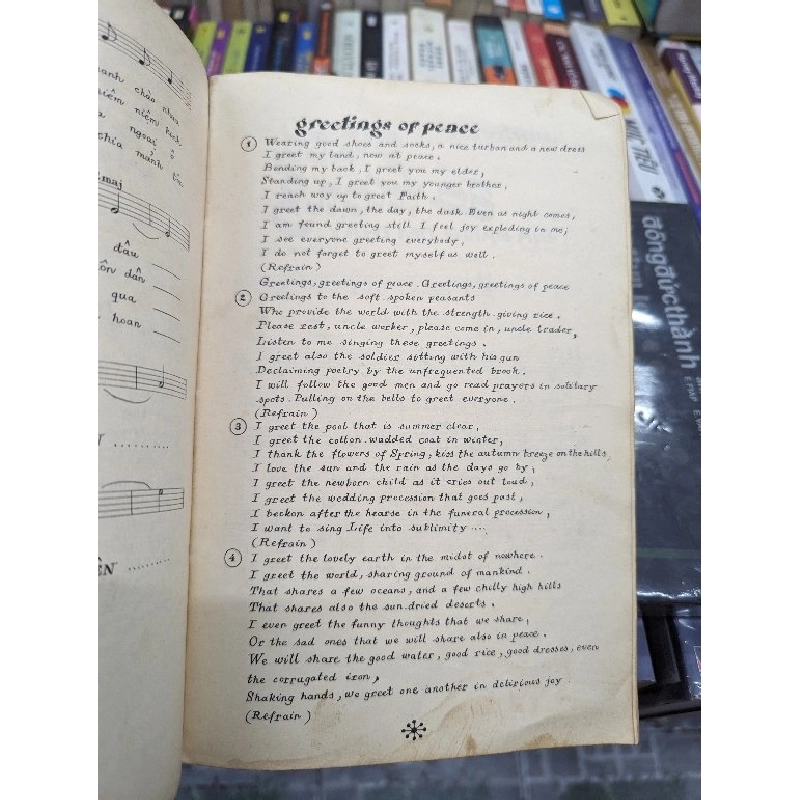 greetings of peace
1 Wearing good shoes and socks, a nice turban and a new dress
I greet my land, now at peace.
Bending my back, I greet you my elder,
Standing up, I greet you my younger brother,
I reach way up to greet Faith.
I greet the dawn, the day, the dusk. Even as night comes,
I am found greeting still I feel joy exploding in me;
I see everyone greeting everybody,
I do not forget to greet myself as well.
(Refrain)
Greetings, greetings of peace. Greetings, greetings of peace
2 Greetings to the soft spoken peasants
Who provide the world with the strength giving rice.
Please rest, uncle worker, please come in, uncle trader,
Listen to me singing these greetings.
I greet also the soldier sitting with his gun
Declaiming poetry by the unfrequented brook.
I will follow the good men and go read prayers in solitary
spots. Pulling on the bells to greet everyone.
(Refrain)
3 I greet the pool that is summer clear,
I greet the cotton.wadded coat in winter,
I thank the flowers of Spring, kiss the autumn breeze on the hills,
I love the sun and the rain as the days go by,
I greet the newborn child as it cries out loud,
I greet the wedding procession that goes past,
I beckon after the hearse in the funeral procession,
I want to sing Life into sublimity ....
(Refrain)
4 I greet the lovely earth in the midst of nowhere.
I greet the world, sharing ground of mankind.
That shares a few oceans, and a few chilly high hills
That shares also the sun.dried deserts.
I even greet the funny thoughts that we share,
Or the sad ones that we will share also in peace.
We will share the good water, good rice, good dresses, even
the corrugated iron,
Shaking hands, we greet one another in delirious joy.
(Refrain)
chào
niềm
ngoại ô
mảnh
maj
đâu
dân
qua
hoan
đôngđứcthành
MỤC TIÊU